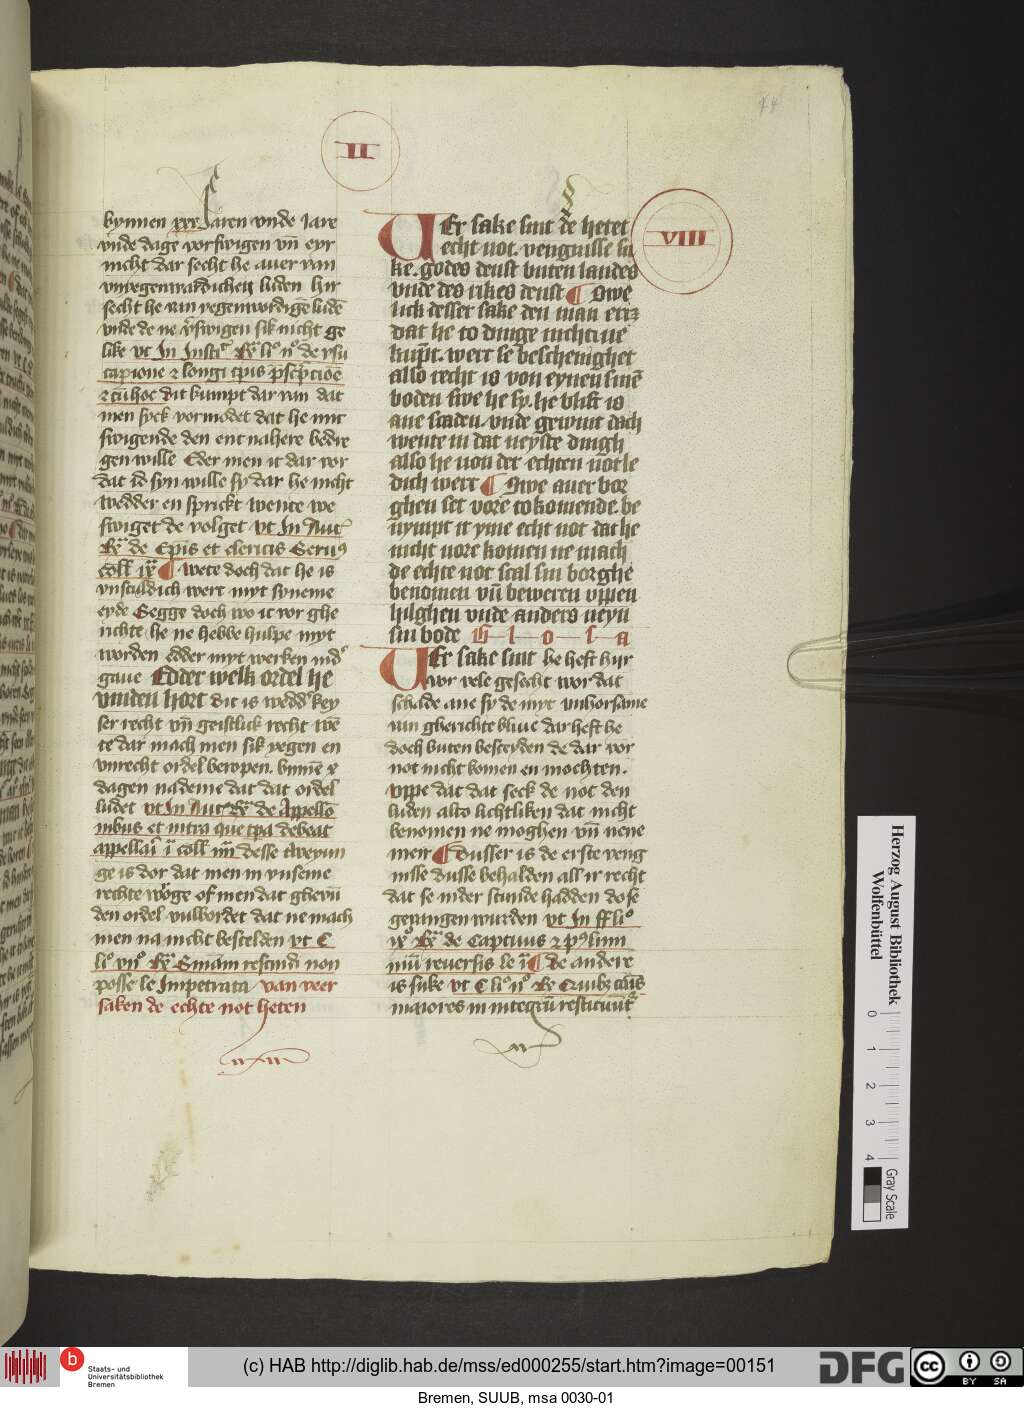 II
44
bynnen xxx Jaren vnde Jare
vnde dage vorswigen vn̄ eyr
nicht dar secht he auer van
vnyegenwardichen luden hir
secht he van yegenwordigē ludē
vnde de ne v̄swigen sik nicht ge
like vt In Insti
capione ⁊ longi tp̄is
⁊ cū hoc dit kumpt dar van dat
men syck vormodet dat he mit
swigende den ent nahere bedre
gen wille Eder men it dar vor
dat id syn wille sy dar he nicht
wedder en sprickt wente we
swiget de volget vt In Aut
de Ep̄is et clericis
coll̄ ix ¶ wete doch dat he is
vnsculdich wert myt syneme
eyde Segge doch wo it vor ghe
richte he ne hebbe hulpe myt
worden edder myt werken
gaue Edder welk ordel he
vinden hort dit is wedd' key
ser recht vn̄ geistlick recht wē
te dar mach men sik yegen en
vnrecht ordel beropen. bynnē x
dagen nademe dat dat ordel
ludet vt In Aut de Appello
nibus et intra que tp̄a debeat
appellari coll̄ iiii desse tweyun
ge is dor dat men in vnseme
rechte of men dat
den ordel vulbordet dat ne mach
men na nicht bestelden vt C
li° vii° rescindi non
posse le Impetrata van veer
saken de echte not heten
VIII
VEr sake sint de hetet
echt not. vengnisse su
ke. godes denst buten landes
vnde des rikes denst ¶ Swe
lich desser sake den man
dat he to dinge nicht ne
kūpt. wert se beschenighet
also recht is von eynen sinē
boden swe he sy. he blift is
ane scaden vnde gewint dach
wente in dat neyste dingh
also he von der echten not le
dich wert ¶ Swe auer bor
ghen set vore to komende. be
nympt it yme echt not dat he
nicht vore komen ne mach
de echte not scal sin borghe
benomen vn̄ beweren vppen
hilghen vnde anders neyn
sin bode G l o s a
VEr sake sint he heft hir
vor vele gesecht wor dat
schade ane sy de myt vnhorsame
van gherichte bliue dar heft he
doch buten bescyden de dar vor
not nicht komen en mochten.
vppe dat dat seck de not den
luden also lichtliken dat nicht
benomen ne moghen vn̄ nene
men ¶ Dusser is de erste veng
nisse dusse behalden all ir recht
dat se in der stunde hadden do se
geuangen wurden vt In ff li°
de Captiuis ⁊
niū reuersis le i ¶ de andere
is suke vt C li° ii° Quibz cāis
maiores in integrū restituūt
Herzog August Bibliothek
Wolfenbüttel
0 1 2 3 4
Gray Scale
b
Staats- und
Universitätsbibliothek
Bremen
(c) HAB http://diglib.hab.de/mss/ed000255/start.htm?image=00151
DFG
cc
BY SA
Bremen, SUUB, msa 0030-01